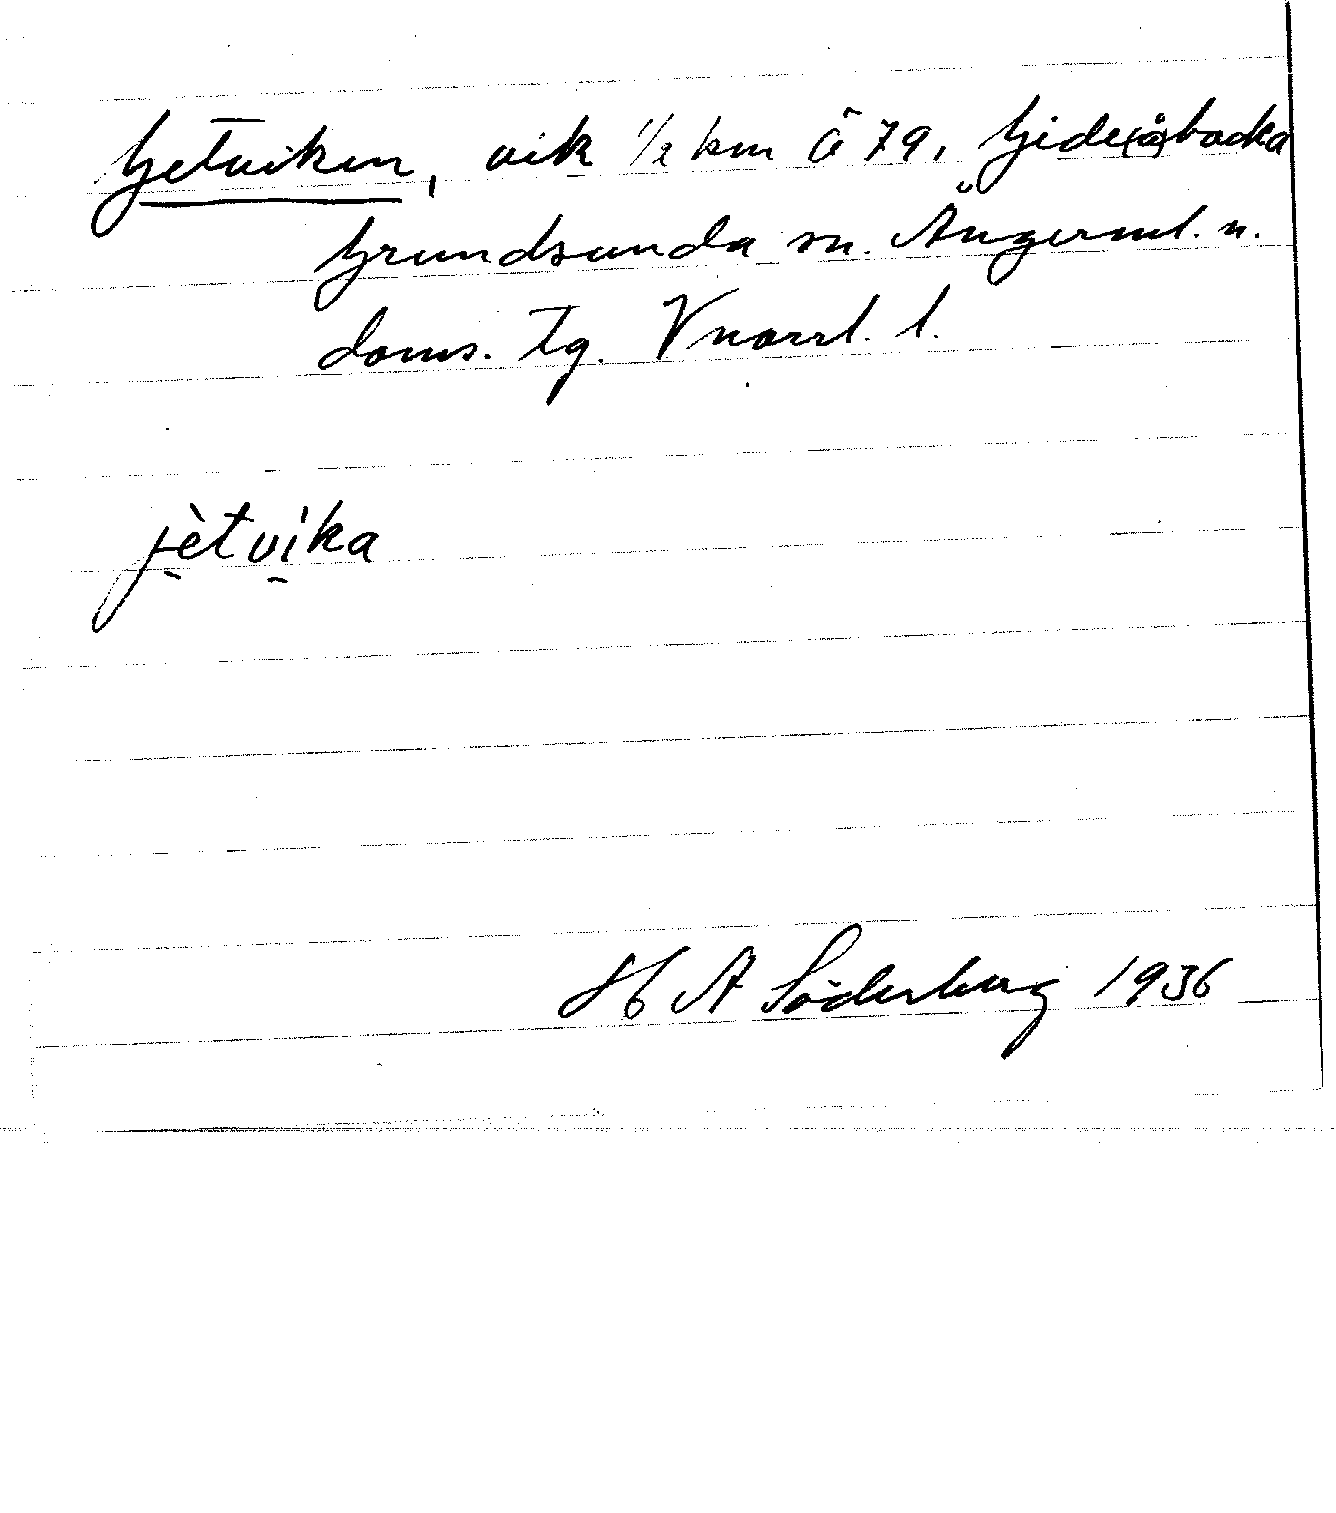 Getviken, vik ½ km Ö 79, Gide(å)backa
Grundsunda sn. Ångerml. n.
doms. tg. Vnorrl. l.
jètvíka
H A Söderberg 1936